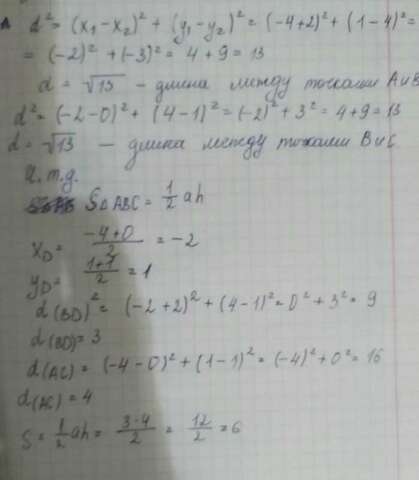 d² = (x₁ - x₂)² + (y₁ - y₂)² = (-4+2)² + (1-4)² =
= (-2)² + (-3)² = 4 + 9 = 13
d = √13 — длина между точками А и В
d² = (-2-0)² + (4-1)² = (-2)² + 3² = 4+9 = 13
d = √13 — длина между точками В и С.
и.т.д.
S△ABC = 1/2 ah
x_D = (-4+0)/2 = -2
y_D = (1+1)/2 = 1
d(BD)² = (-2+2)² + (4-1)² = 0² + 3² = 9
d(BD) = 3
d(AC) = (-4-0)² + (1-1)² = (-4)² + 0² = 16
d(AC) = 4
S = 1/2 ah = 3·4/2 = 12/2 = 6